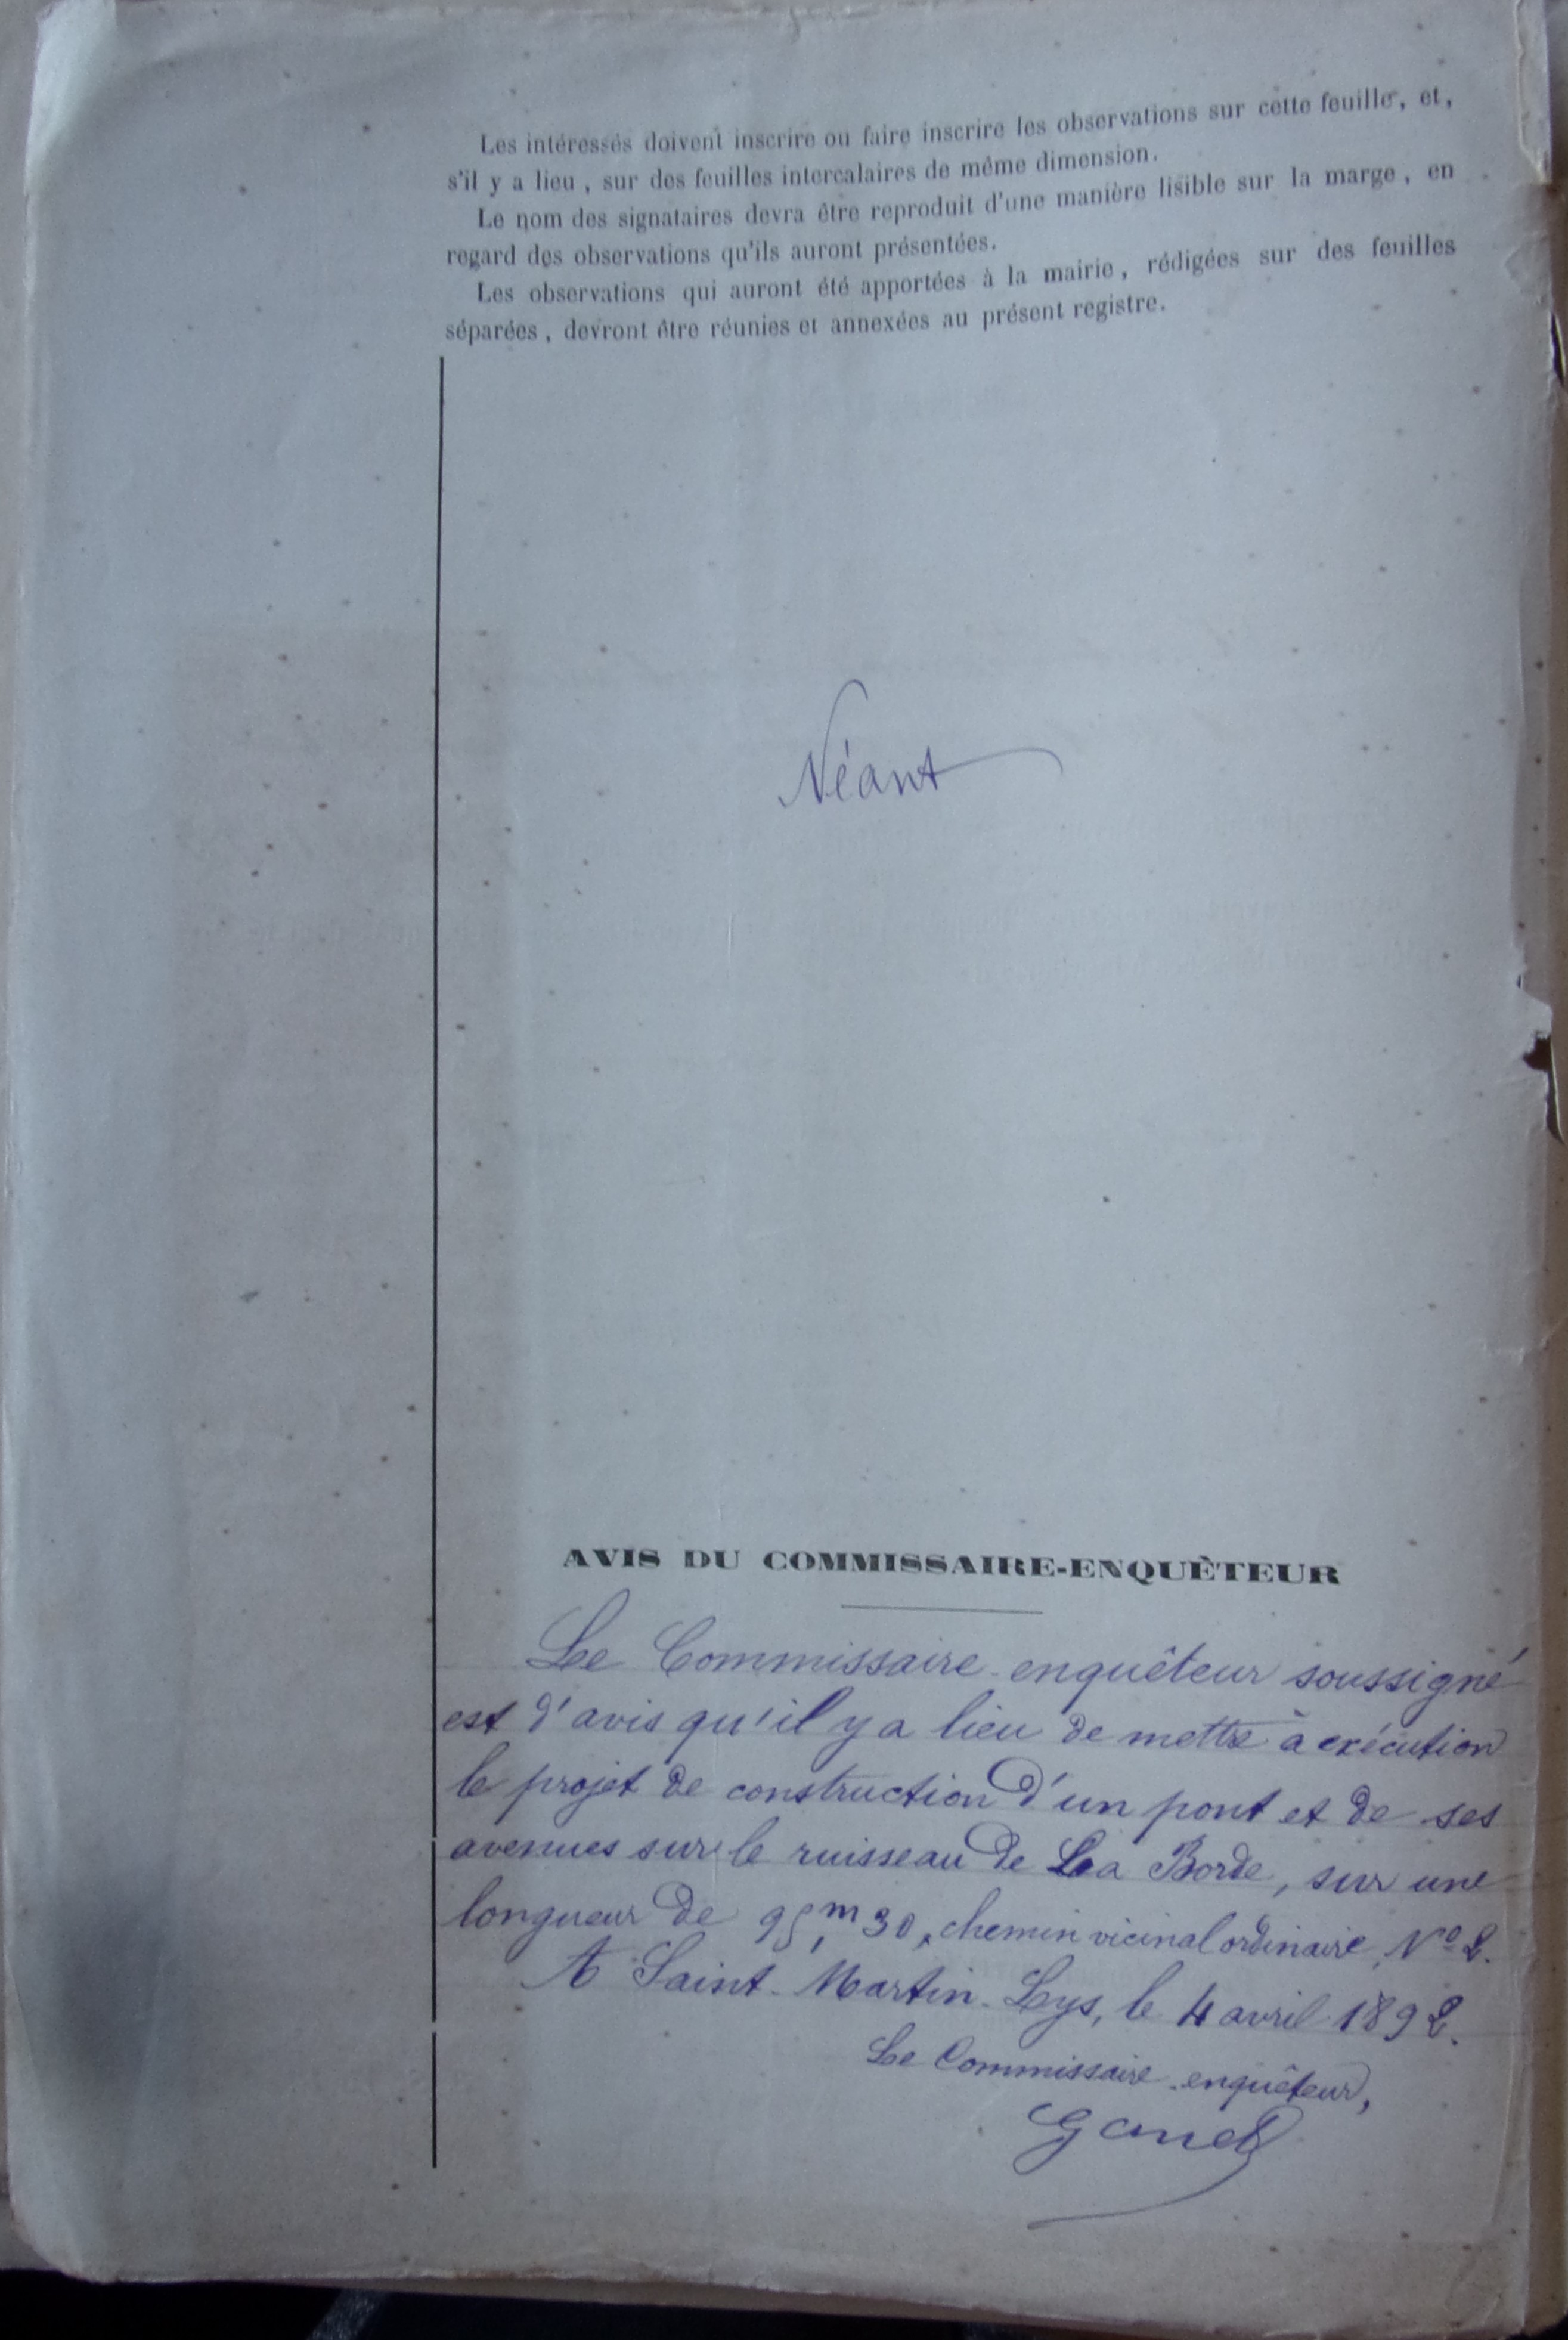 Les intéressés doivent inscrire ou faire inscrire les observations sur cette feuille, et,
s'il y a lieu, sur des feuilles intercalaires de même dimension.
Le nom des signataires devra être reproduit d'une manière lisible sur la marge, en
regard des observations qu'ils auront présentées.
Les observations qui auront été apportées à la mairie, rédigées sur des feuilles
séparées, devront être réunies et annexées au présent registre.
Néant
AVIS DU COMMISSAIRE-ENQUÈTEUR
Le Commissaire-enquêteur soussigné
est d'avis qu'il y a lieu de mettre à exécution
le projet de construction d'un pont et de ses
avenues sur le ruisseau de La Borde, sur une
longueur de 95,m30, chemin vicinal ordinaire, No 2.
A Saint-Martin-Lys, le 4 avril 1892.
Le Commissaire-enquêteur,